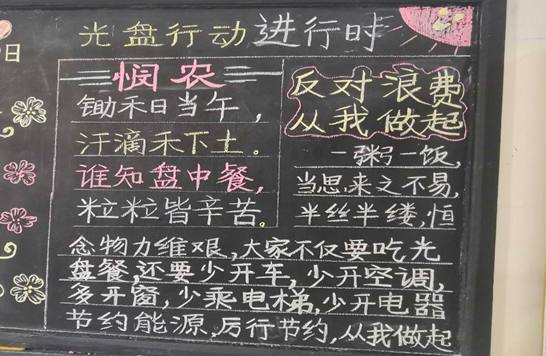 日
光盘行动 进行时
悯农
锄禾日当午，
汗滴禾下土。
谁知盘中餐，
粒粒皆辛苦。
反对浪费
从我做起
一粥一饭，
当思来之不易，
半丝半缕，恒
念物力维艰，大家不仅要吃光
盘餐，还要少开车，少开空调，
多开窗，少乘电梯，少开电器
节约能源，厉行节约，从我做起